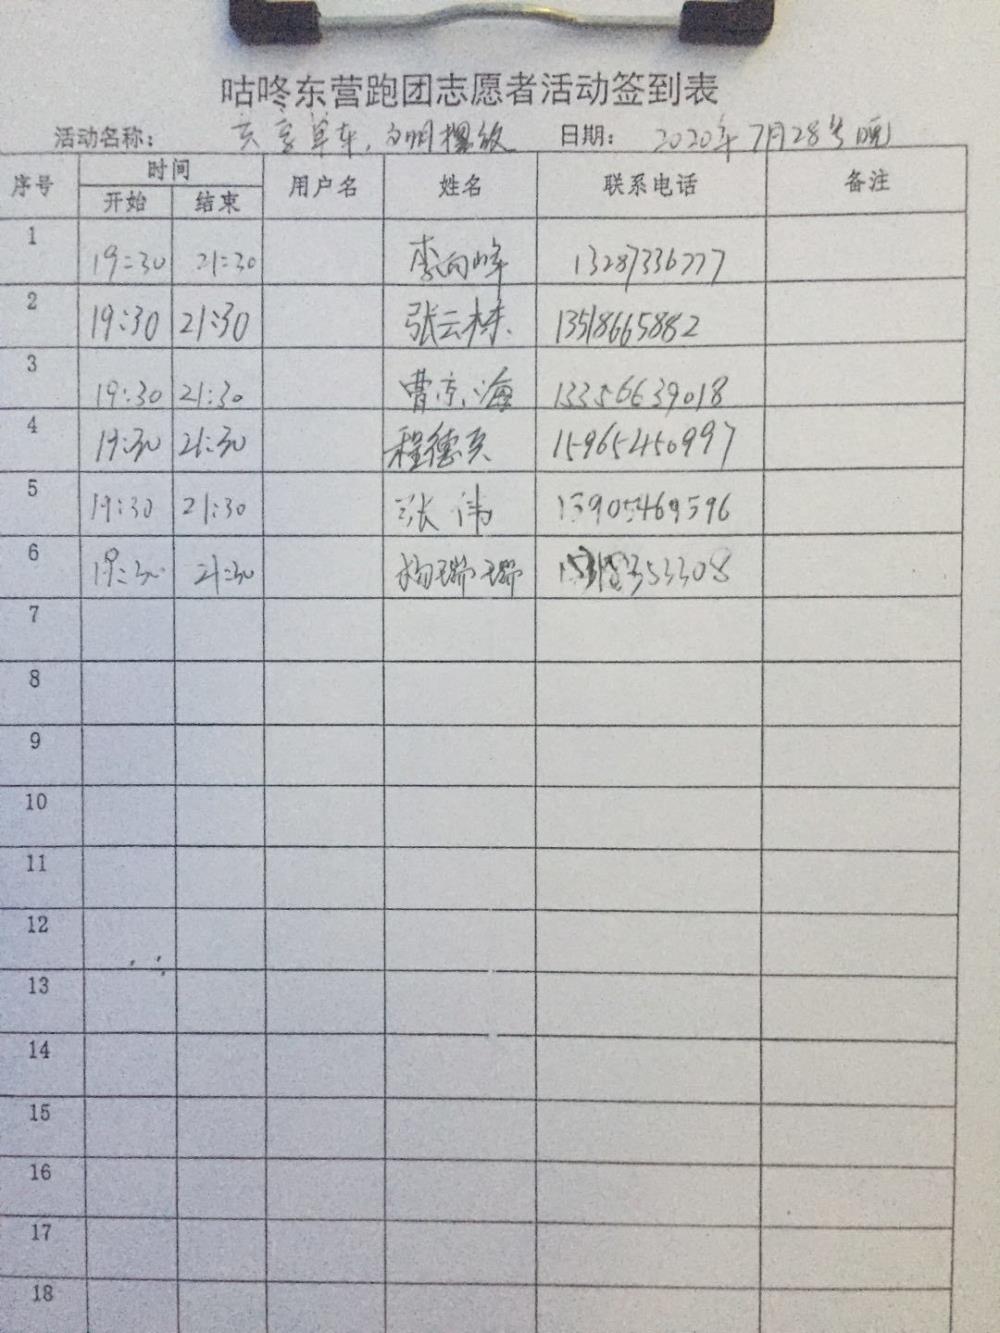 咕咚东营跑团志愿者活动签到表
活动名称： 共享单车，文明摆放 日期： 2020年7月28号晚
序号 时间 用户名 姓名 联系电话 备注
开始 结束
1 19:30 21:30 李向峰 13287336777
2 19:30 21:30 张云栋 13518665882
3 19:30 21:30 曹京海 13356639018
4 19:30 21:30 程德英 15965450997
5 19:30 21:30 张伟 13905469596
6 19:30 21:30 杨瑞瑞
7
8
9
10
11
12
13
14
15
16
17
18